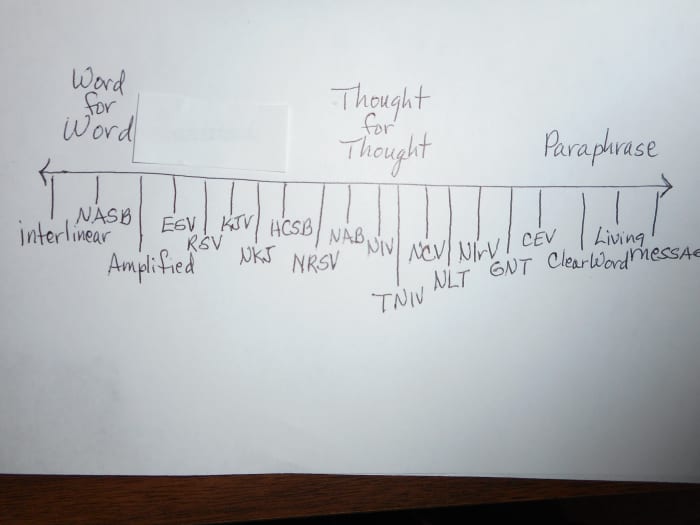 Word
for
Word
Thought
for
Thought
Paraphrase
interlinear
NASB
Amplified
ESV
RSV
KJV
NKJ
HCSB
NRSV
NAB
NIV
TNIV
NCV
NLT
NIrV
GNT
CEV
ClearWord
Living
MESSAG